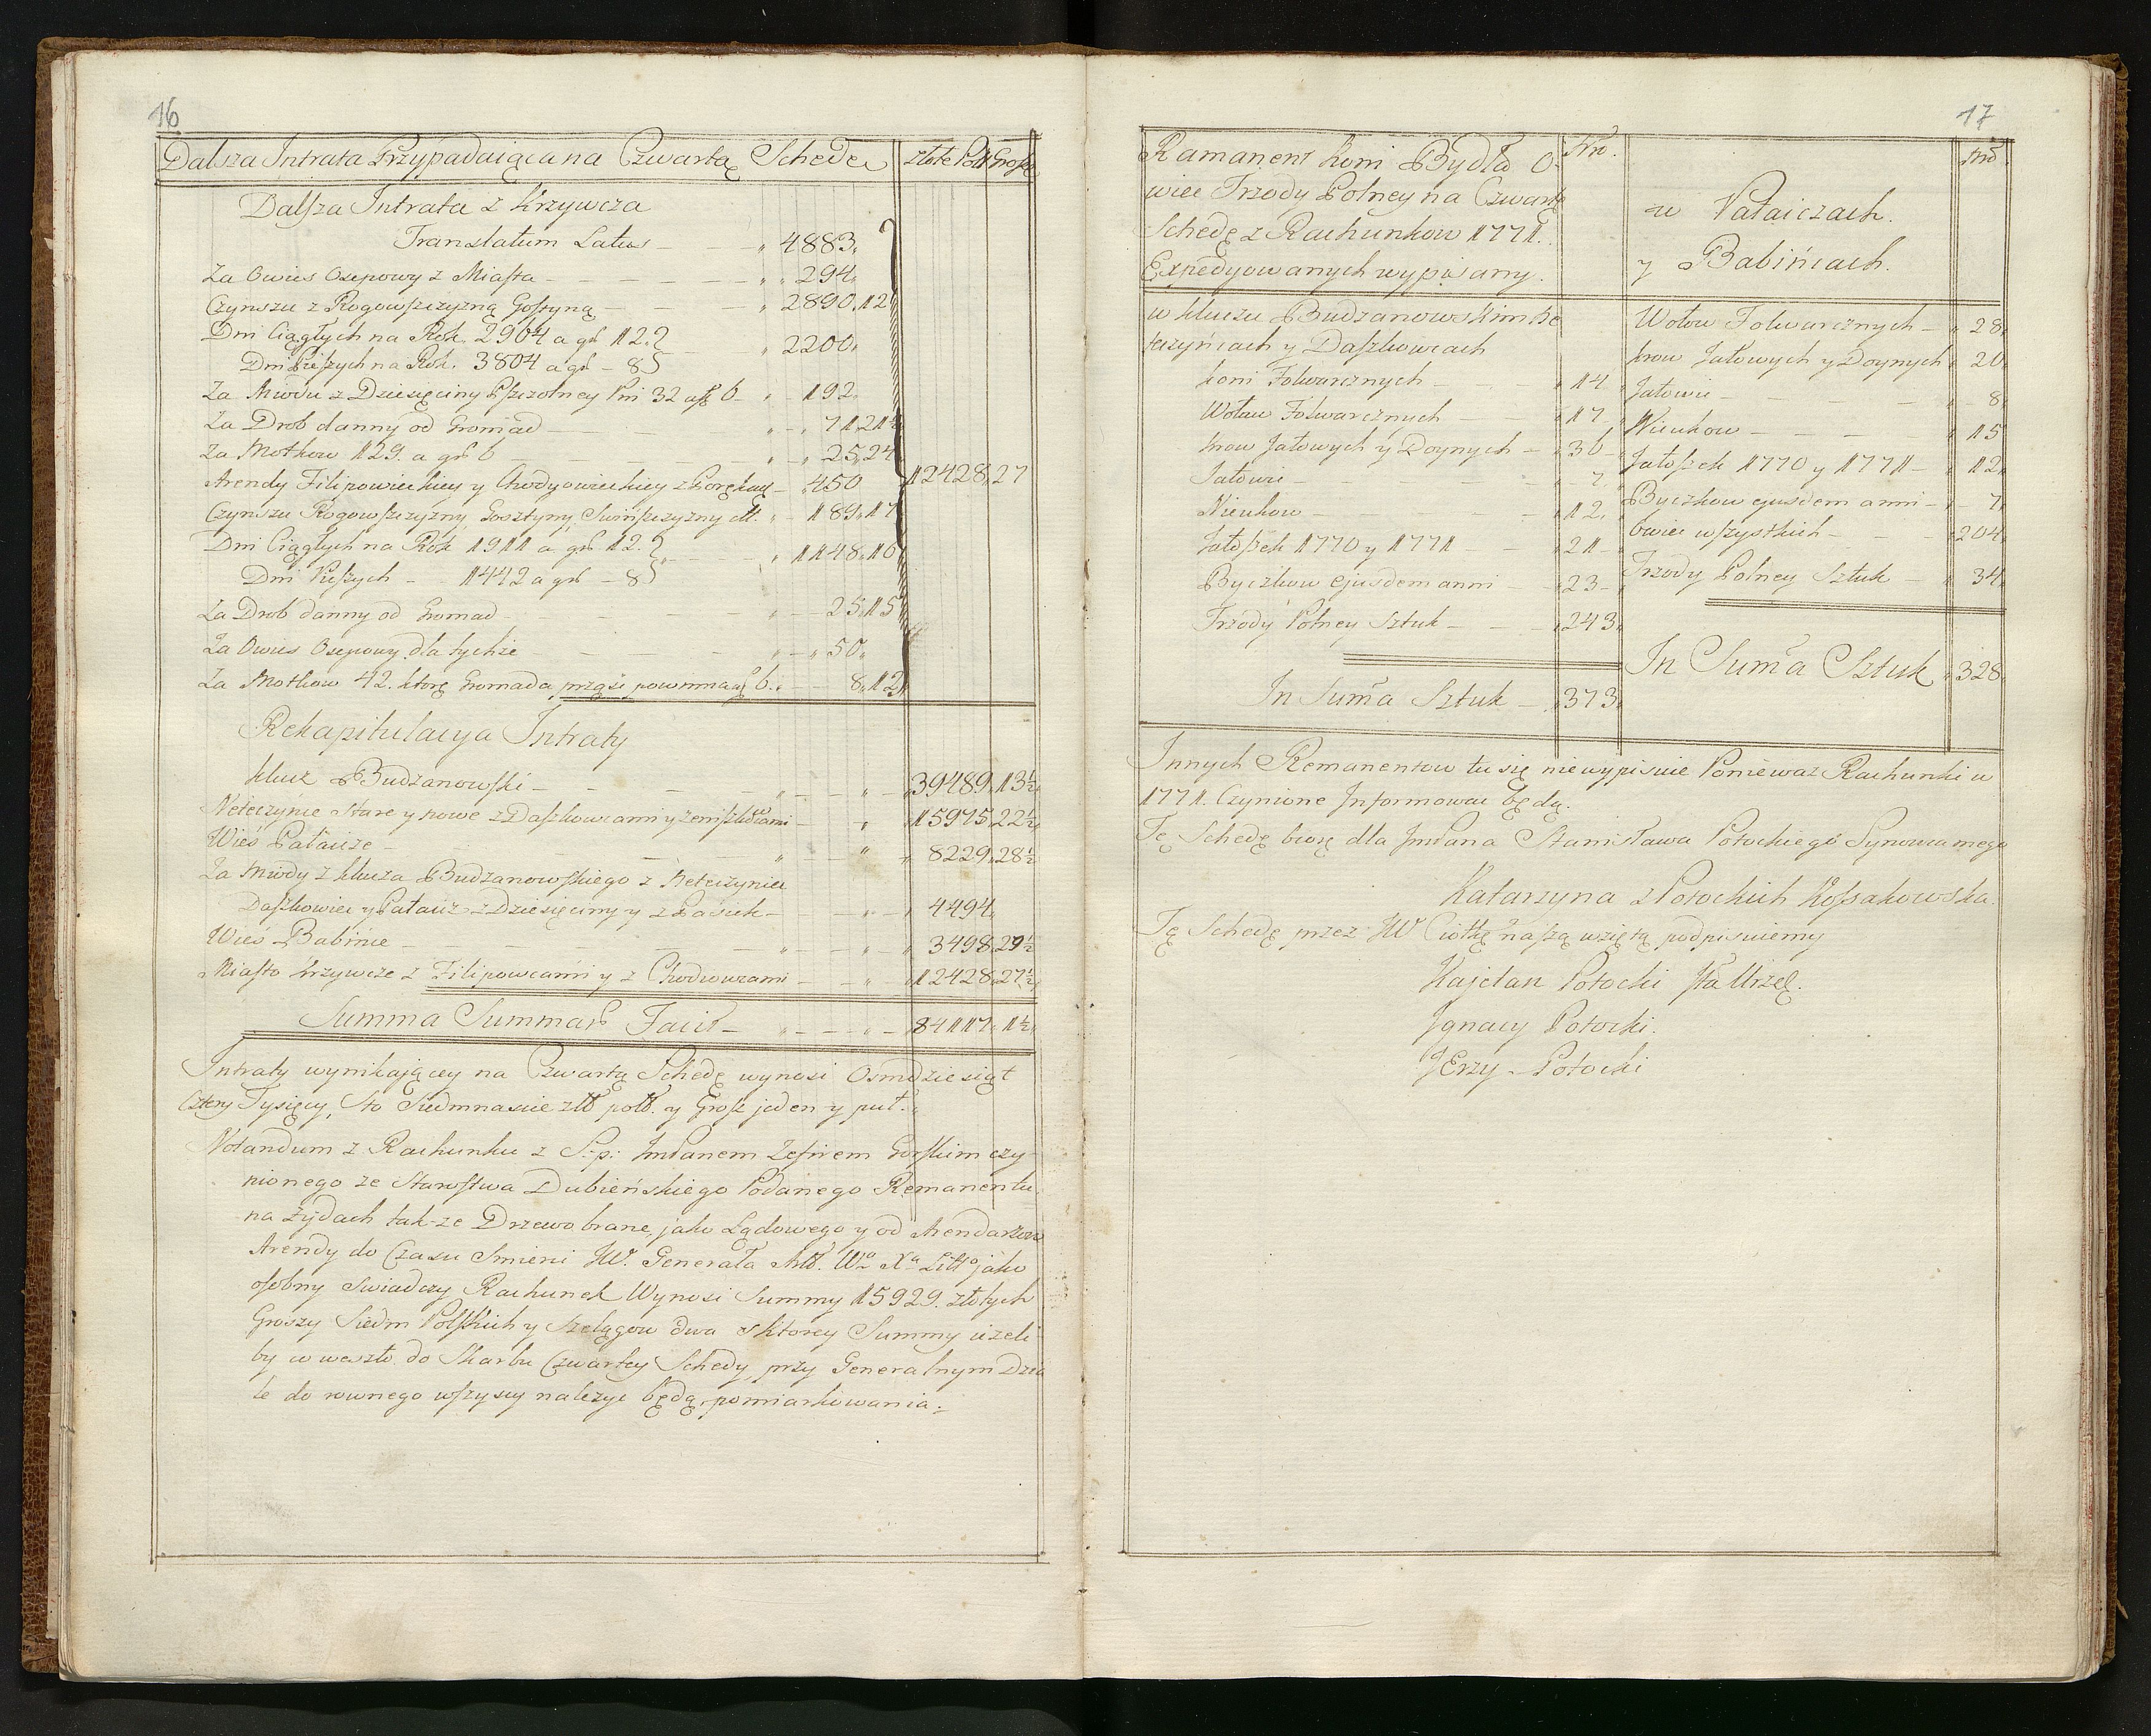 16
Dalsza Intrata Przypadaiąca na Czwartą Schedę złote Pol: Grosze
Dalsza Intrata z Krzywcza
Translatum Latus 4883
Za Owies Osepowy z Miasta 294
Czynszu z Rogowszczyzną Gostyną 2890 12
Dni Ciągłych na Rok 2964 a gr 12
Dni Pieszych na Rok. 3804 a gr 8 2200
Za Miodu z Dziesięciny Pszczolney Pni 32 a 6 192
Za Drob danny od Gromad 71 21½
Za Motkow 129. a gr 6 25 24
Arendy Filipowieckiey y Chodyowieckiey z 450 12428 27
Czynszu Rogowszczyzny, Gosztyny, Swinszczyzny 189 17
Dni Ciągłych na Rok 1911 a gr 12.
Dni Pieszych 1442 a gr 8 1148 16
Za Drob danny od Gromad 25 15
Za Owies Osepowy dla tychże 50
Za Motkow 42. ktore Gromada prząść powinna a 6. 8 12
Rekapitulacya Intraty
Klucz Budzanowski 39489 13½
Neteczyńce Stare y nowe z Daszkowcami y 15975 22½
Wieś Pałaicze 8229 28½
Za Miody z klucza Budzanowskiego z Neteczyniec
Daszkowiec y Pałaicz z Dziesięciny y z Pasiek 4494
Wieś Babińce 3498 29½
Miasto Krzywcze z Filipowcami y z Chodiowcami 12428 27½
Summa Summar Facit 84117 1½
Intraty wynikającey na Czwartą Schedę wynosi Osmdziesiąt
Cztery Tysięcy, Sto Siedmnascie złł poll. y Grosz jeden y puł.
Notandum z Rachunku z S: p: ImPanem Zefirem Gorskim czy-
nionego ze Starostwa Dubieńskiego Podanego Remanentu
na żydach tak-ze Drzewo brane, jako Lądowego y od Arendarzow
Arendy do Czasu Smierci JW. Generała Art. Wo Xa Littº jako
osobny swiadczy Rachunek Wynosi Summy 15929. złotych
Groszy Siedm Polskich y Szelągow dwa z ktorey Summy ieżeli
by co weszło do Skarbu Czwartey Schedy, przy Generalnym Dzia
le do rownego wszyscy nalezyc będą pomiarkowania.
17
Ramanent Koni Bydła O-
wiec Trzody Polney na Czwartą
Schedę z Rachunkow 1771.
Expedyowanych wypisany. Nro.
w kluczu Budzanowskim Ne
teczyńcach y Daszkowcach
Koni Folwarcznych 14
Wołow Folwarcznych 17
Krow Jałowych y Doynych 36
Jałowic 7
Nieukow 12
Jałoszek 1770 y 1771 21
Byczkow ejusdem anni 23
Trzody Polney Sztuk 243
In Summa Sztuk 373
w Pałaiczach.
y Babińcach. Nro
Wołow Folwarcznych 28
Krow Jałowych y Doynych 20
Jałowic 8
Nieukow 15
Jałoszek 1770 y 1771 12
Byczkow ejusdem anni 7
Owiec wszystkich 204
Trzody Polney Sztuk 34
In Summa Sztuk 328
Innych Remanentow tu się niewypisuie Ponieważ Rachunki w
1771. Czynione Informować będą.
Tę Schedę biorę dla JmPana Stanisława Potockiego Synowca mego
Katarzyna z Potockich Kossakowska.
Tę Schedę przez JW Ciotkę naszą wziętą podpisuiemy
Kajetan Potocki Sta Urzęd.
Ignacy Potocki.
JErzy Potocki